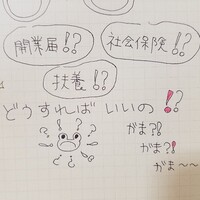 開業届!?
社会保険!?
扶養!?
どうすれば いいの!?
がま?!
がま?!
がま〜〜